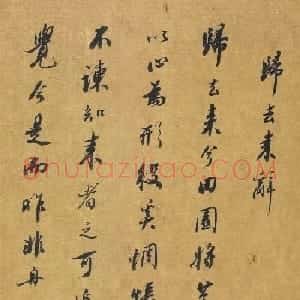 歸去来辭
歸去来兮田園將
以心為形役奚惆悵
不諫知来者之可追
覺今是而昨非舟